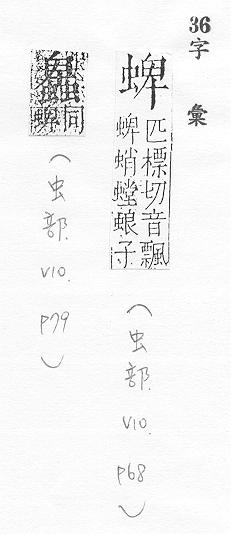 36字彙
蜱
匹標切音飄
蜱蛸螳蜋子
(虫部. V10. P68)
同
蜱
(虫部. V10. P79)